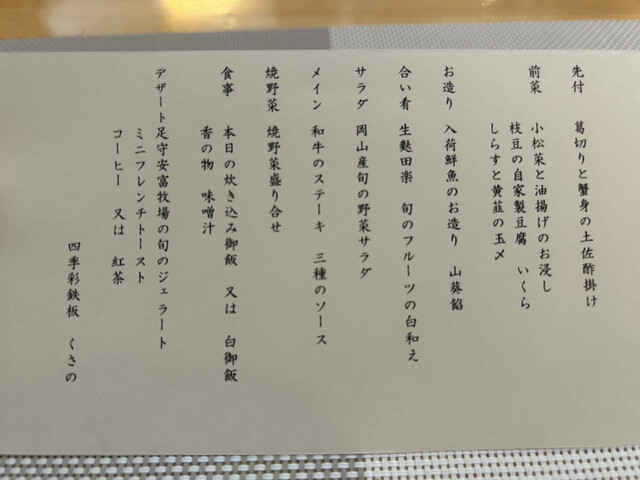 先付　葛切りと蟹身の土佐酢掛け
前菜　小松菜と油揚げのお浸し
枝豆の自家製豆腐　いくら
しらすと黄韮の玉〆
お造り　入荷鮮魚のお造り　山葵餡
合い肴　生麩田楽　旬のフルーツの白和え
サラダ　岡山産旬の野菜サラダ
メイン　和牛のステーキ　三種のソース
焼野菜　焼野菜盛り合せ
食事　本日の炊き込み御飯　又は　白御飯
香の物　味噌汁
デザート足守安富牧場の旬のジェラート
ミニフレンチトースト
コーヒー　又は　紅茶
四季彩鉄板　くさの